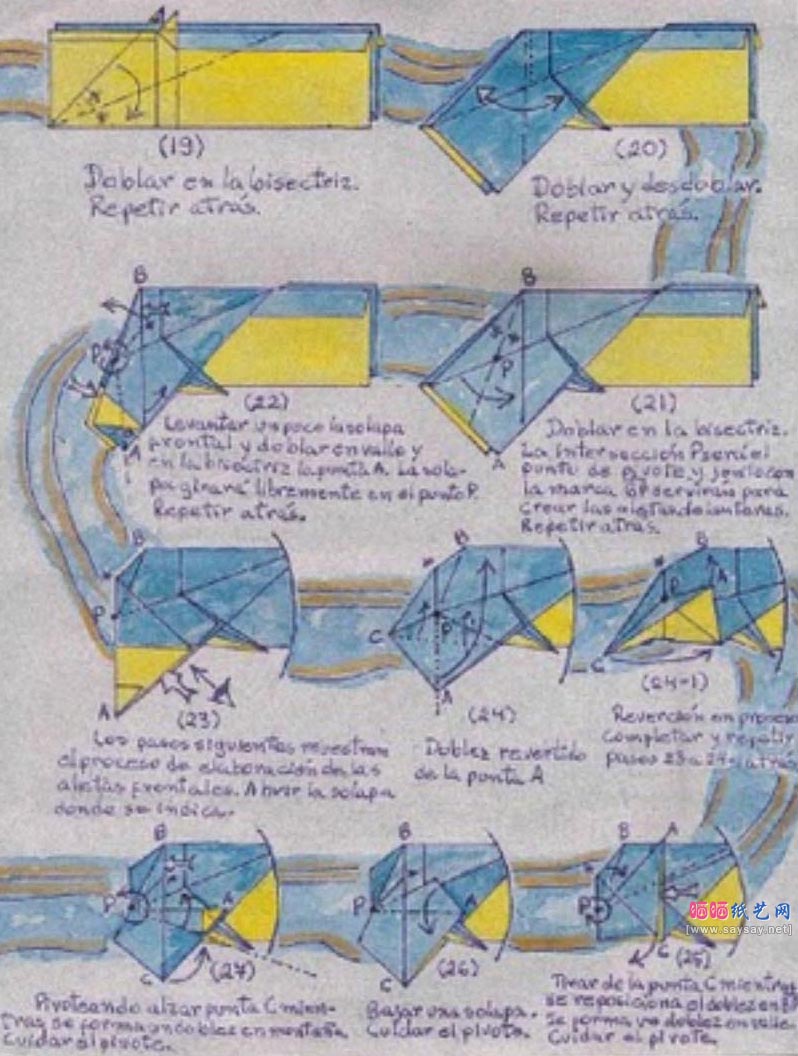 (19)
Doblar en la bisectriz.
Repetir atrás.
(20)
Doblar y desdoblar.
Repetir atrás.
B
P
A
(22)
Levantar un poco la solapa
frontal y doblar en valle y
en la bisectriz la punta A. La sola-
pa girará libremente en el punto P.
Repetir atrás.
B
P
A
(21)
Doblar en la bisectriz.
La intersección P será el
punto de pivote y
la marca BP servirán para
crear las aletas delanteras.
Repetir atrás.
B
P
A
(23)
Los pasos siguientes muestran
el proceso de elaboración de las
aletas frontales. Abrir la solapa
donde se indica.
B
C
P
A
(24)
Doblez revertido
de la punta A
B
P
A
C
(24-1)
Reversión en proceso
completar y repetir
pasos 23 a 24 atrás
B
P
A
C
(27)
Pivoteando alzar punta C mien-
tras se forma un doblez en montaña
Cuidar el pivote.
B
P
A
C
(26)
Bajar una solapa.
Cuidar el pivote.
B
A
P
C
(25)
Tirar de la punta C mientras
se reposiciona el doblez en BP
Se forma un doblez en valle.
Cuidar el pivote.
晒晒纸艺网
[www.saysay.net]